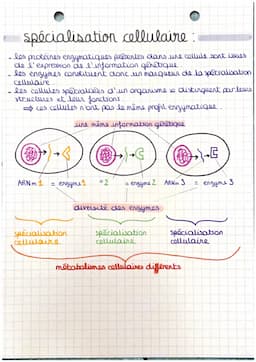 spécialisation cellulaire :
- les protéines enzymatiques présentes dans une cellule sont issues
de l'expression de l'information génétique.
- les enzymes constituent donc un marqueur de la spécialisation
cellulaire.
- les cellules spécialisées d'un organisme se distinguent par leurs
structures et leurs fonctions.
⇒ ces cellules n'ont pas le même profil enzymatique.
une même information génétique
ARNm 1 = enzyme 1 " 2 = enzyme 2 ARNm 3 = enzyme 3
diversité des enzymes
spécialisation cellulaire
spécialisation cellulaire
spécialisation cellulaire
métabolismes cellulaires différents